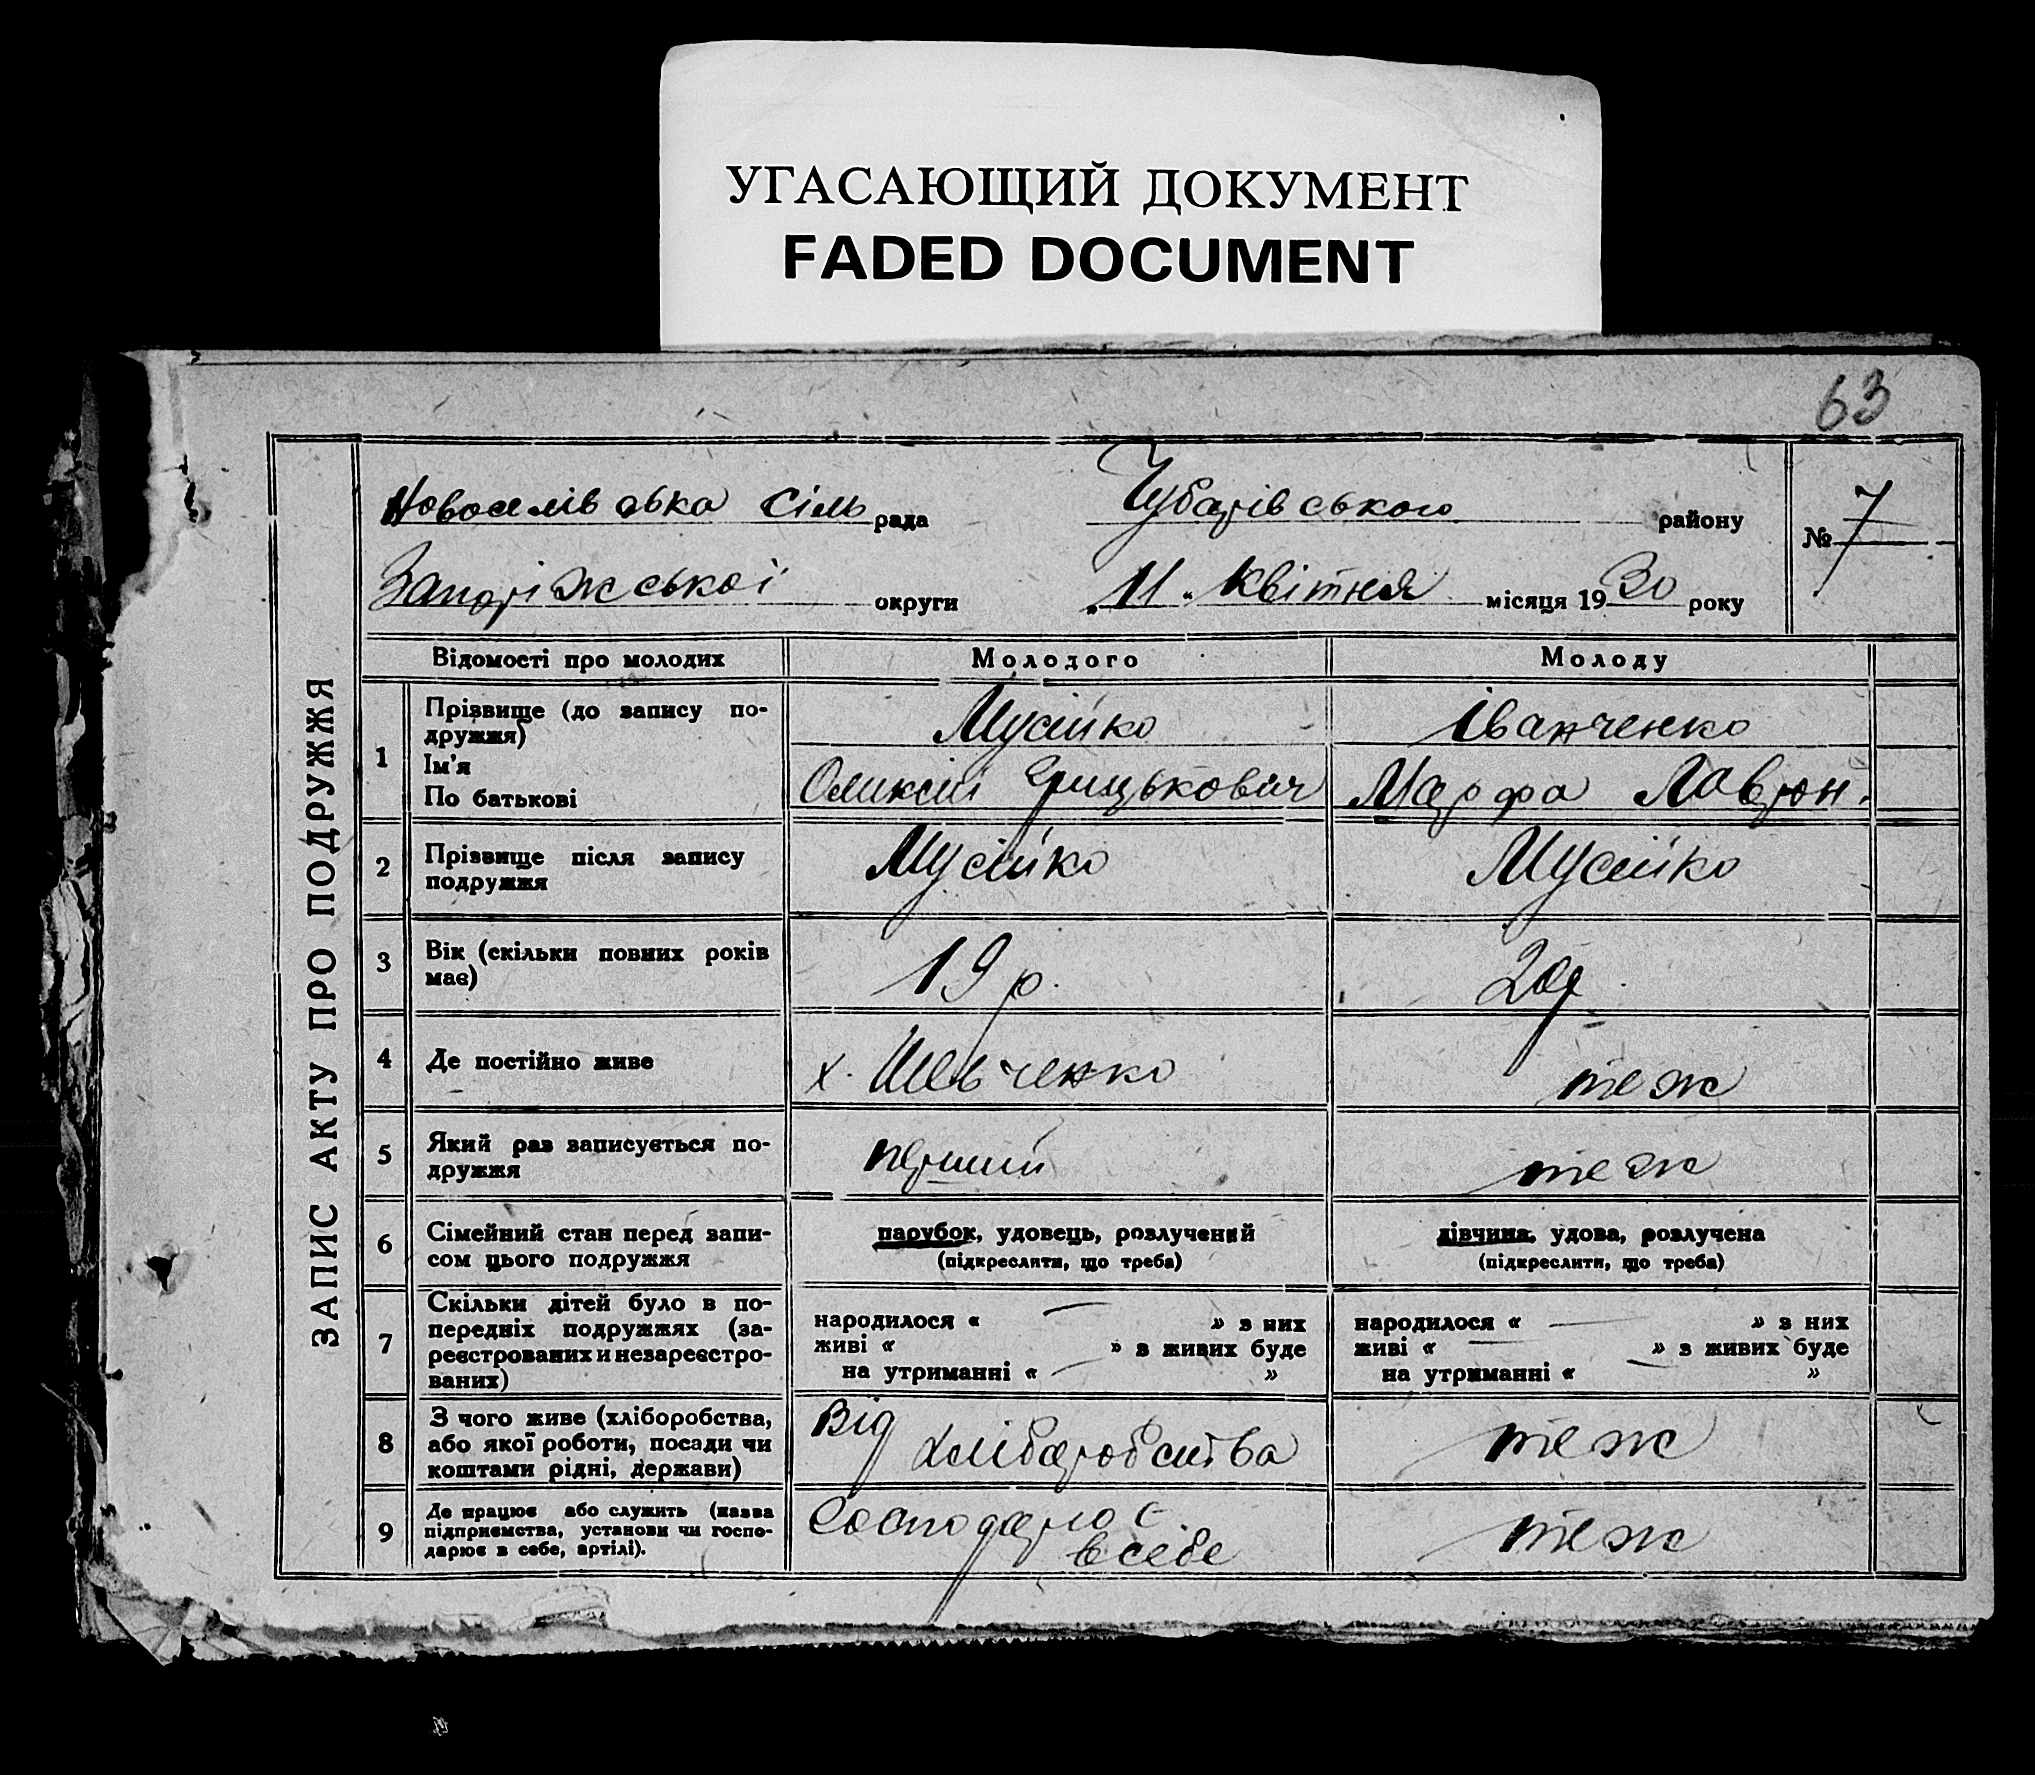 УГАСАЮЩИЙ ДОКУМЕНТ
FADED DOCUMENT
63
ЗАПИС АКТУ ПРО ПОДРУЖЖЯ
Новоселівська сіль рада Чубарівського району
№ 7
Запоріжської округи „11" Квітня місяця 1930 року
Відомості про молодих Молодого Молоду
1 Прізвище (до запису по-
дружжя) Мусійко Іванченко
Ім'я
По батькові Оликсій Грицькович Марфа Лаврон.
2 Прізвище після запису
подружжя Мусійко Мусійко
3 Вік (скільки повних років
має) 19 р. 20 р
4 Де постійно живе х. Шевченко теж
5 Який раз записується по-
дружжя перший теж
6 Сімейний стан перед запи-
сом цього подружжя
парубок, удовець, розлучений
(підкреслити, що треба)
дівчина, удова, розлучена
(підкреслити, що треба)
7 Скільки дітей було в по-
передніх подружжях (за-
реєстрованих и незареєстро-
ваних)
народилося « — » з них
живі « » з живих буде
на утриманні « — »
народилося « — » з них
живі « — » з живих буде
на утриманні « — »
8 З чого живе (хліборобства,
або якої роботи, посади чи
коштами рідні, держави)
Від
хліборобства
теж
9 Де працює або служить (назва
підприємства, установи чи госпо-
дарює в себе, артілі).
Господарює
в себе
теж